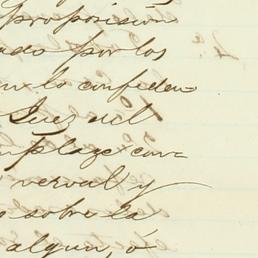 proposición
ado por los
lo confiden-
Juez del
emplazo con-
verval y
sobre la
algun, ó